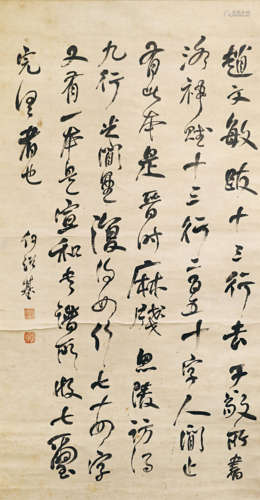 趙文敏跋十三行云子敬所書
洛神賦十三行二百五十字人間止
有此本是晉時麻牋思陵訪得
九行復得四行七十四字
又有一本是宣和書譜所收七璽
完者也
何紹基